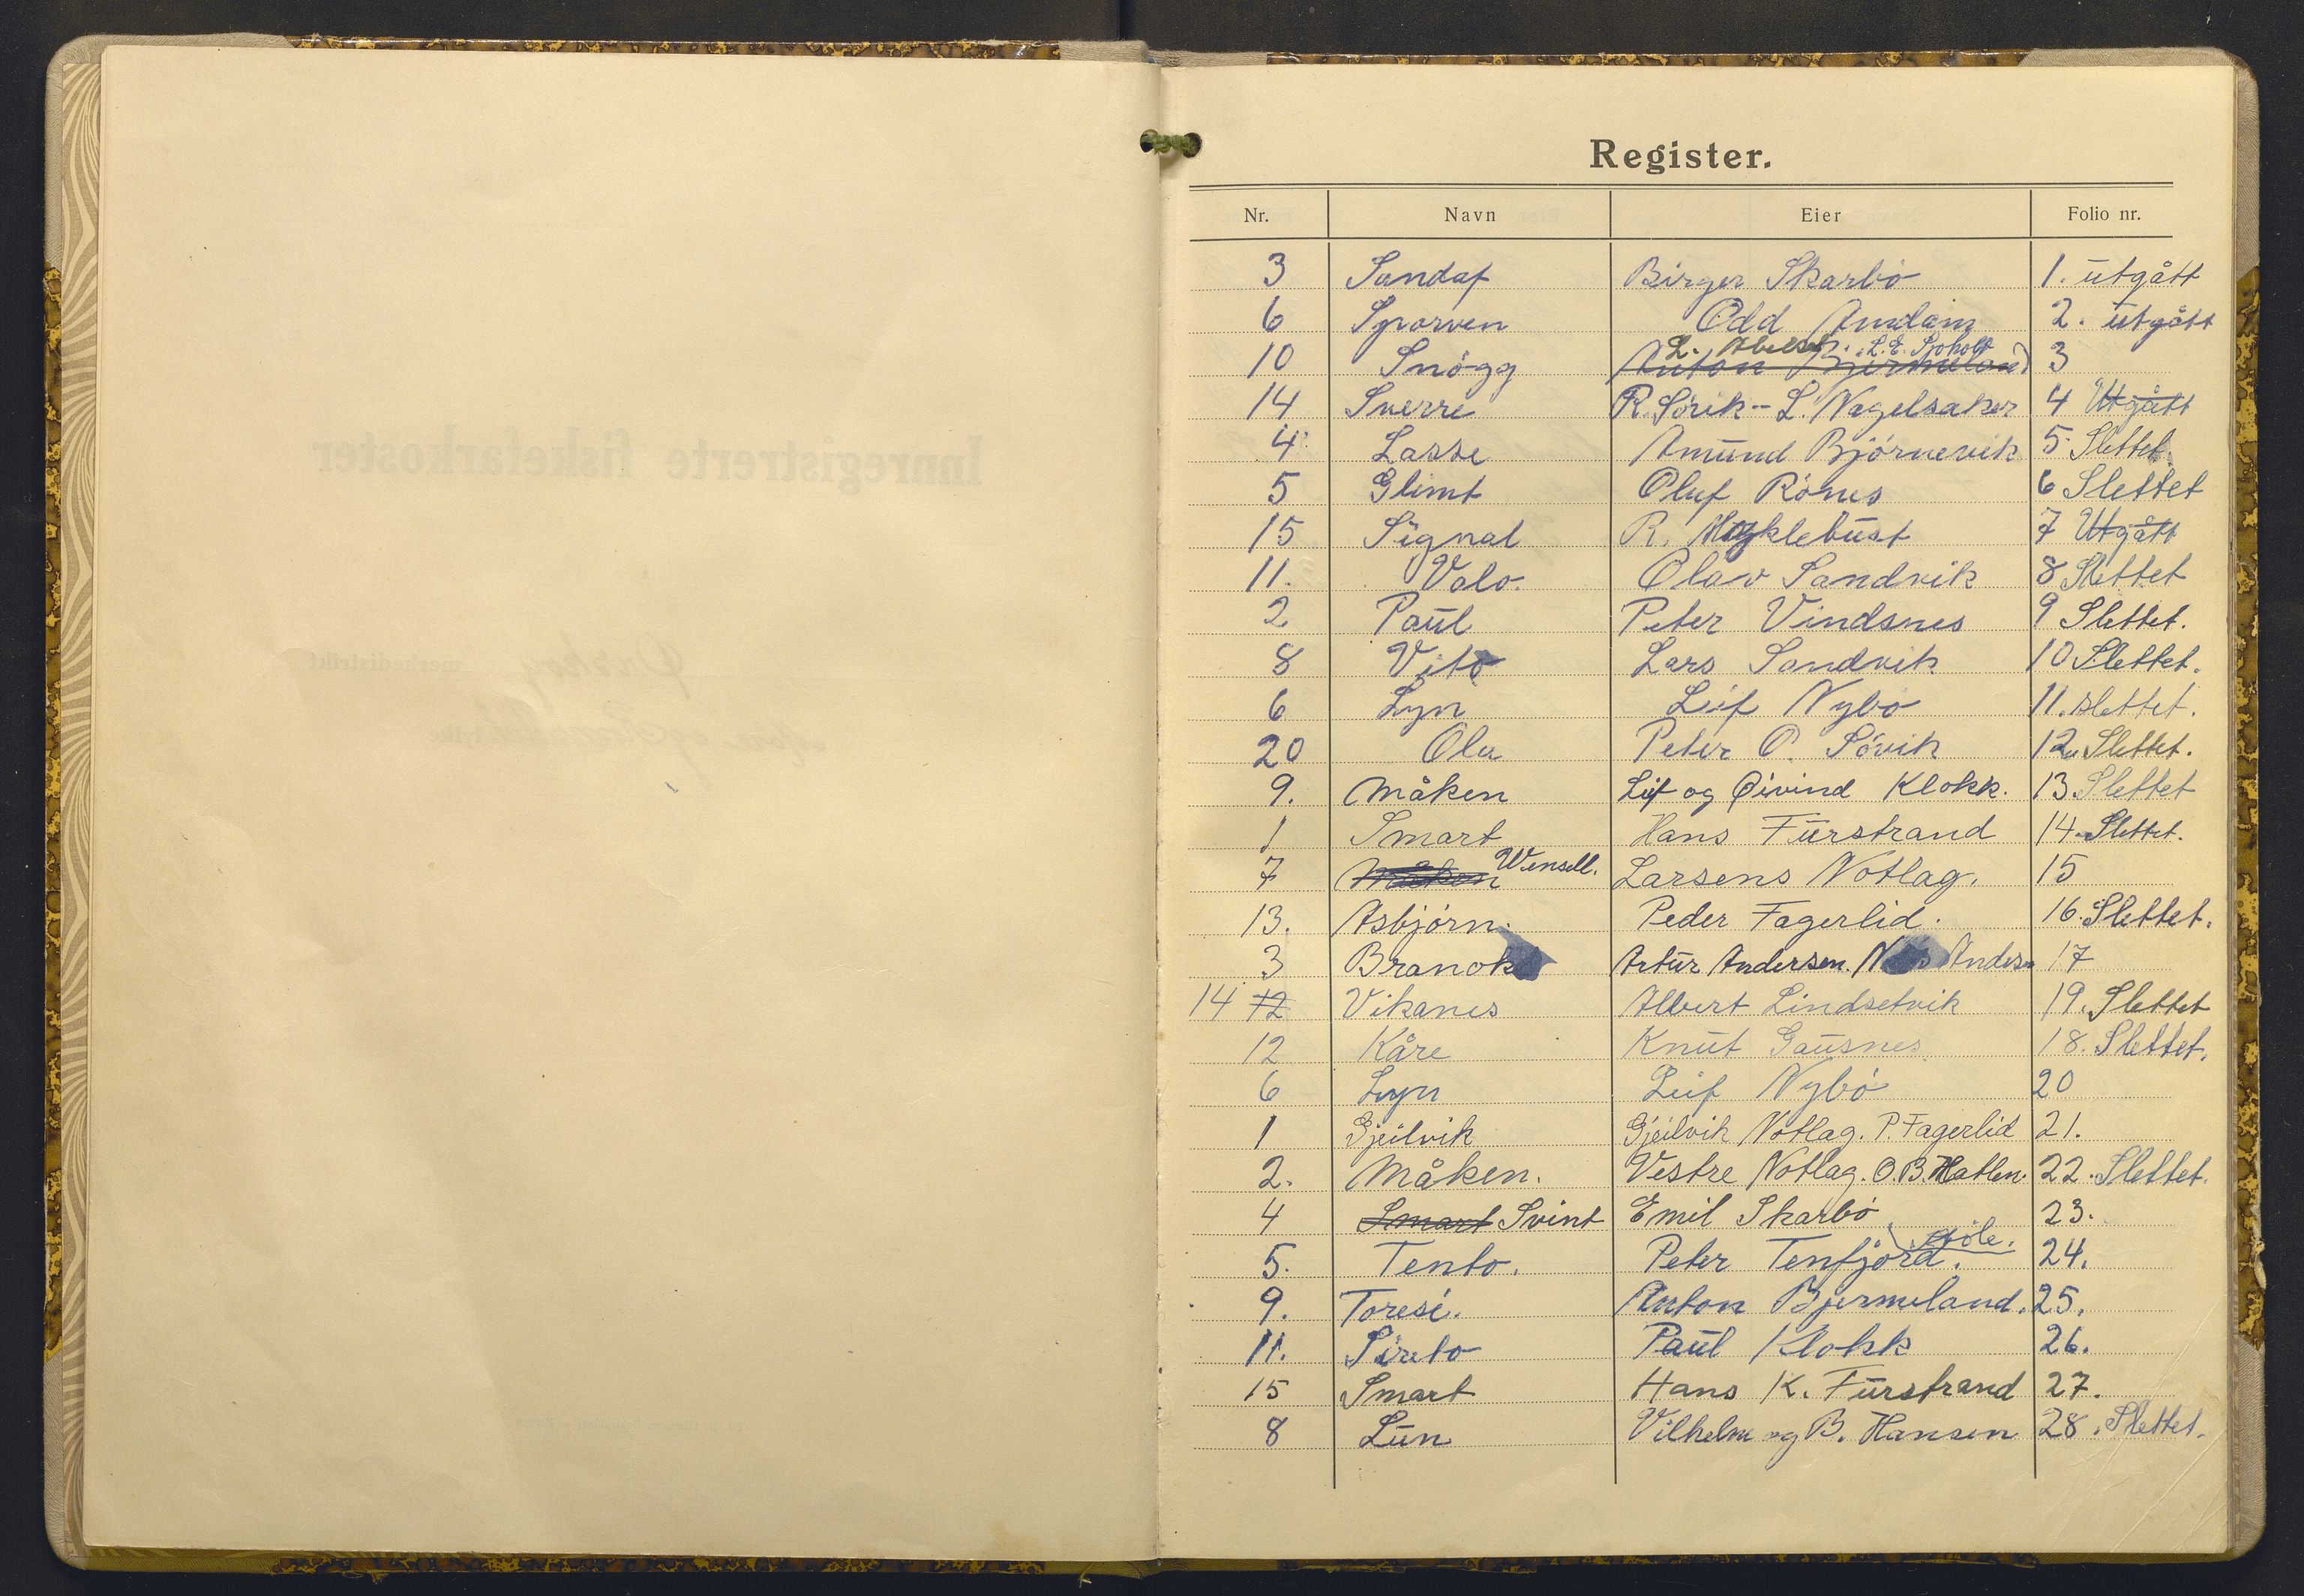 Register.
Nr. Navn Eier Folio nr.
3 Sandøf Birger Skarbö 1. utgått
6 Sporven Odd Amdam 2. utgått
L. L. E. Sjoholt
10 Snögg Anton Bjermeland 3
14 Sverre R. Sörik - L. Nagelsaker 4 Utgått
4 Lasse Amund Björnevik 5 Slettet.
5 Glimt Oluf Rönes 6 Slettet
15 Signal R. Myklebust 7 Utgått
11. Valo. Olav Sandvik 8 Slettet
2 Paul Peter Vindsnes 9 Slettet.
8 Vito Lars Sandvik 10 Slettet.
6 Lyn Leif Nybö 11. slettet.
20 Ola Peter O. Sövik 12. Slettet.
9. Måken Leif og Øivind Klokk. 13 Slettet
1 Smart Hans Furstrand 14. Slettet.
7 Måken Wensell. Larsens Notlag. 15
13. Asbjörn. Peder Fagerlid. 16. Slettet.
3 Artur Andersen. 17
14 12 Vikanes Albert Lindsetvik 19. Slettet
12 Kåre Knut Gausnes 18. Slettet.
6 Lyn Leif Nybö 20
1 Gjeilvik Gjeilvik Notlag. P. Fagerlid 21.
2. Måken. Vestre Notlag. O. B. Hatlen. 22. Slettet.
4 Smart Svint Emil Skarbö 23.
5. Tento. Peter Tenfjord. 24.
9. Toresi. Anton Bjermeland. 25.
11. Sireto Paul Klokk 26.
15 Smart Hans K. Furstrand 27.
8 Lun Vilhelm og B. Hansen 28. Slettet.